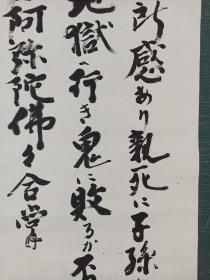 所感あり親死に子孫
地獄へ行き鬼に敗るか否
阿弥陀佛々合掌